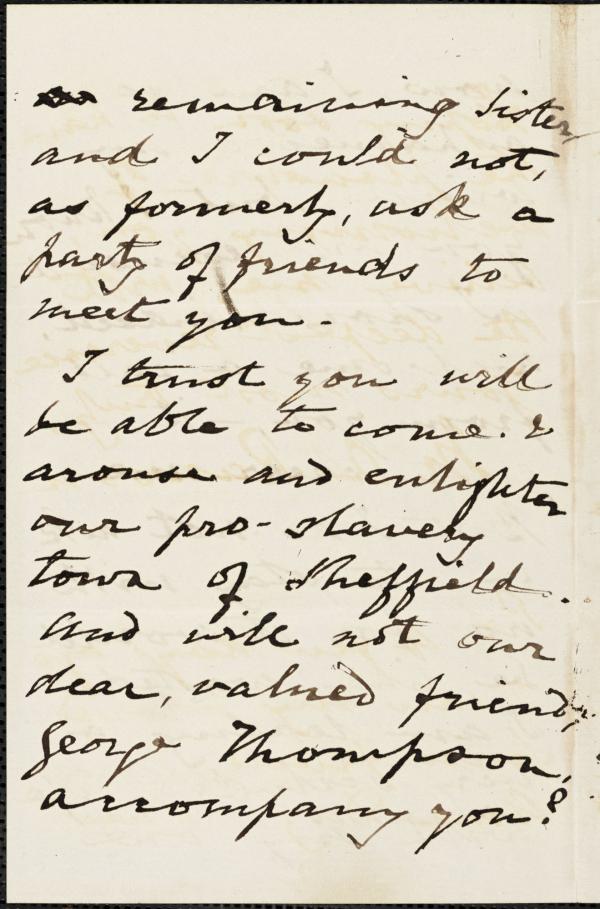 remaining Sister,
and I could not,
as formerly, ask a
party of friends to
meet you.
I trust you will
be able to come. &
arouse and enlighten
our pro-slavery
town of Sheffield.
And will not our
dear, valued friend,
George Thompson,
accompany you?